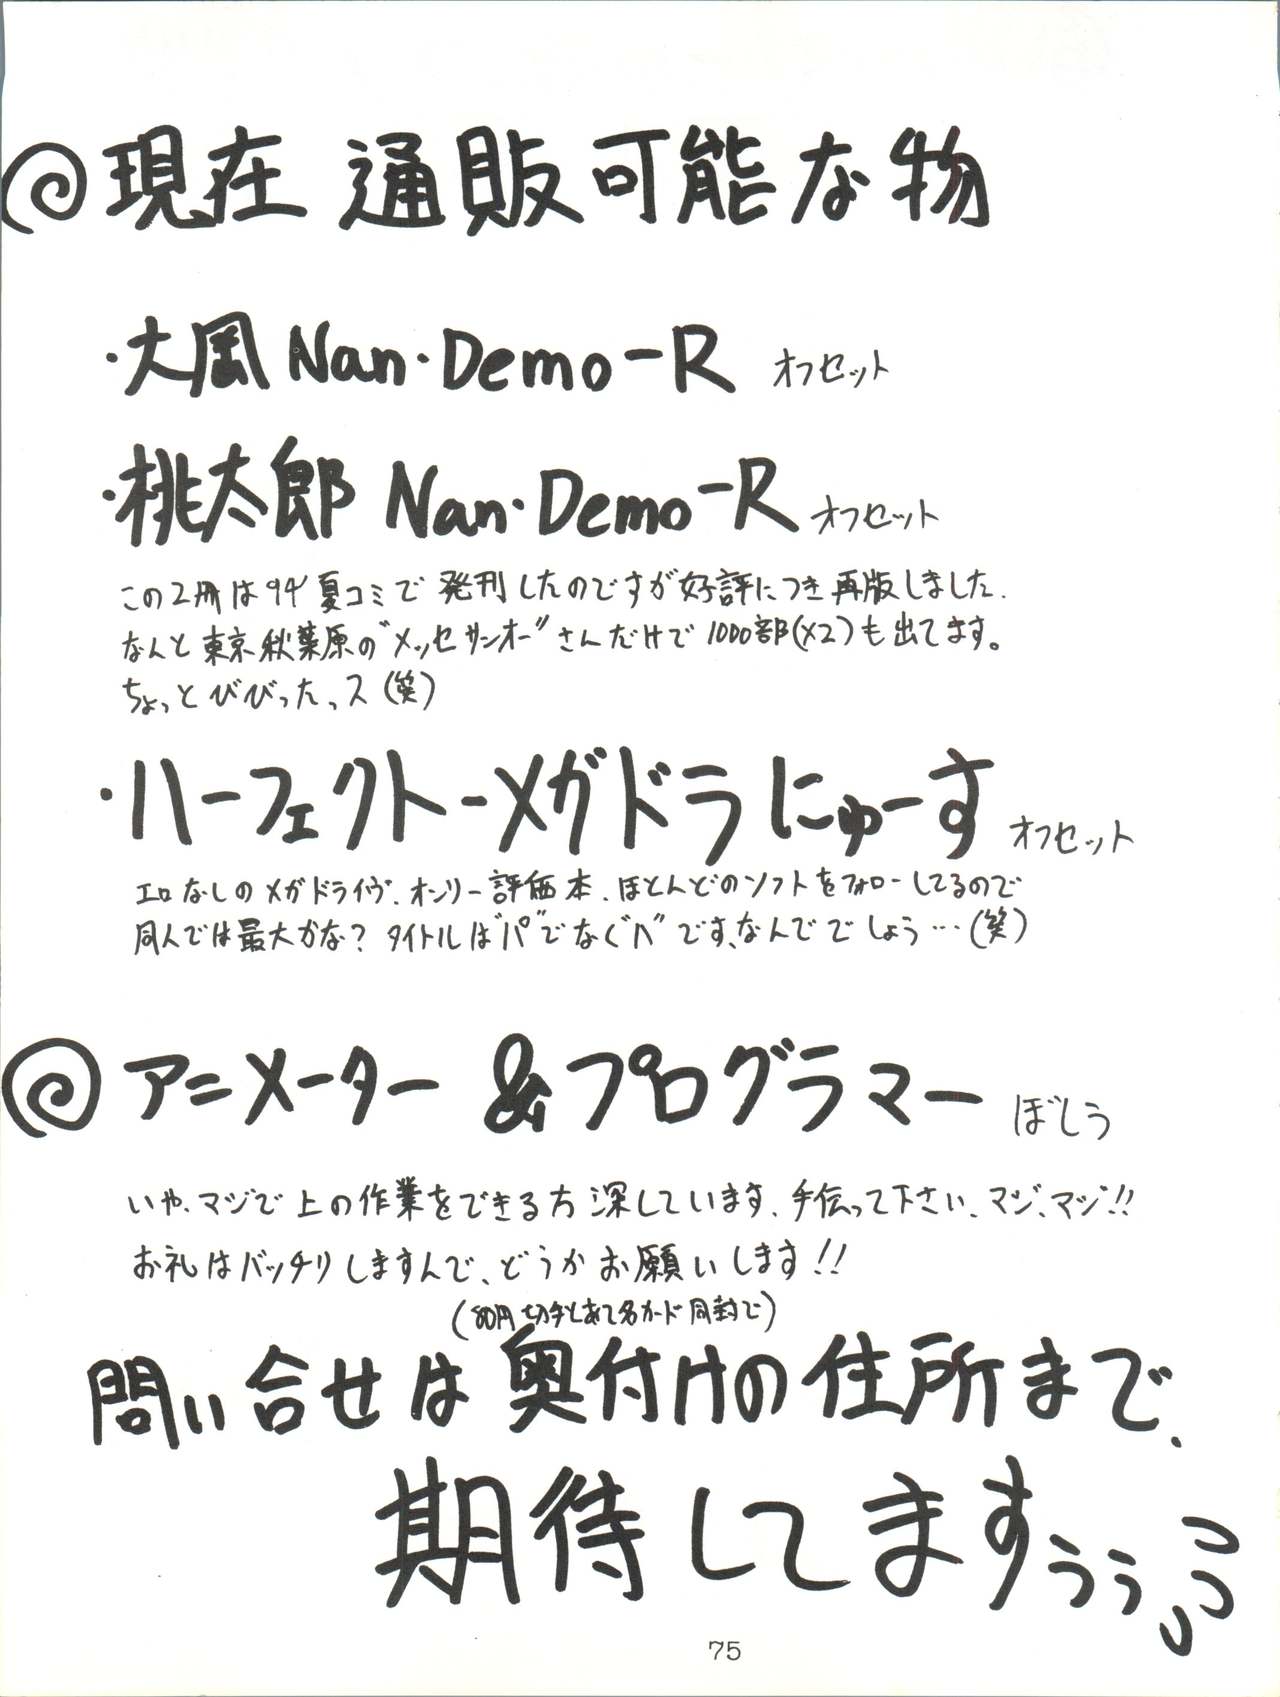 現在 通販可能な物
・大岡 Nan・Demo-R オフセット
・桃太郎 Nan・Demo-R オフセット
この2冊は94'夏コミで発刊したのですが好評につき再版しました.
なんと東京秋葉原の"メッセサンオー"さんだけで1000部(×2)も出てます。
ちょっとびびったっス(笑)
・ハーフェクト-メガドラにゅーす オフセット
エロなしのメガドライヴ.オンリー評価本、ほとんどのソフトをフォローしてるので
同人では最大かな?タイトルは"パ"でなく"ハ"です、なんででしょう…(笑)
アニメーター&プログラマー ぼしう
いや、マジで上の作業をできる方深しています、手伝って下さい、マジ、マジ!!
お礼はバッチリしますんで、どうかお願いします!!
(80円切手とあて名カード同封で)
問い合せは奥付けの住所まで.
期待してますぅぅ
75